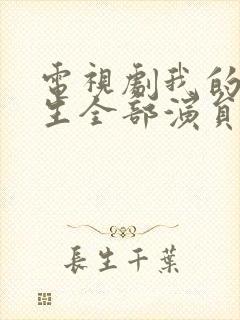 電視劇我的
生全部演員
長生千葉